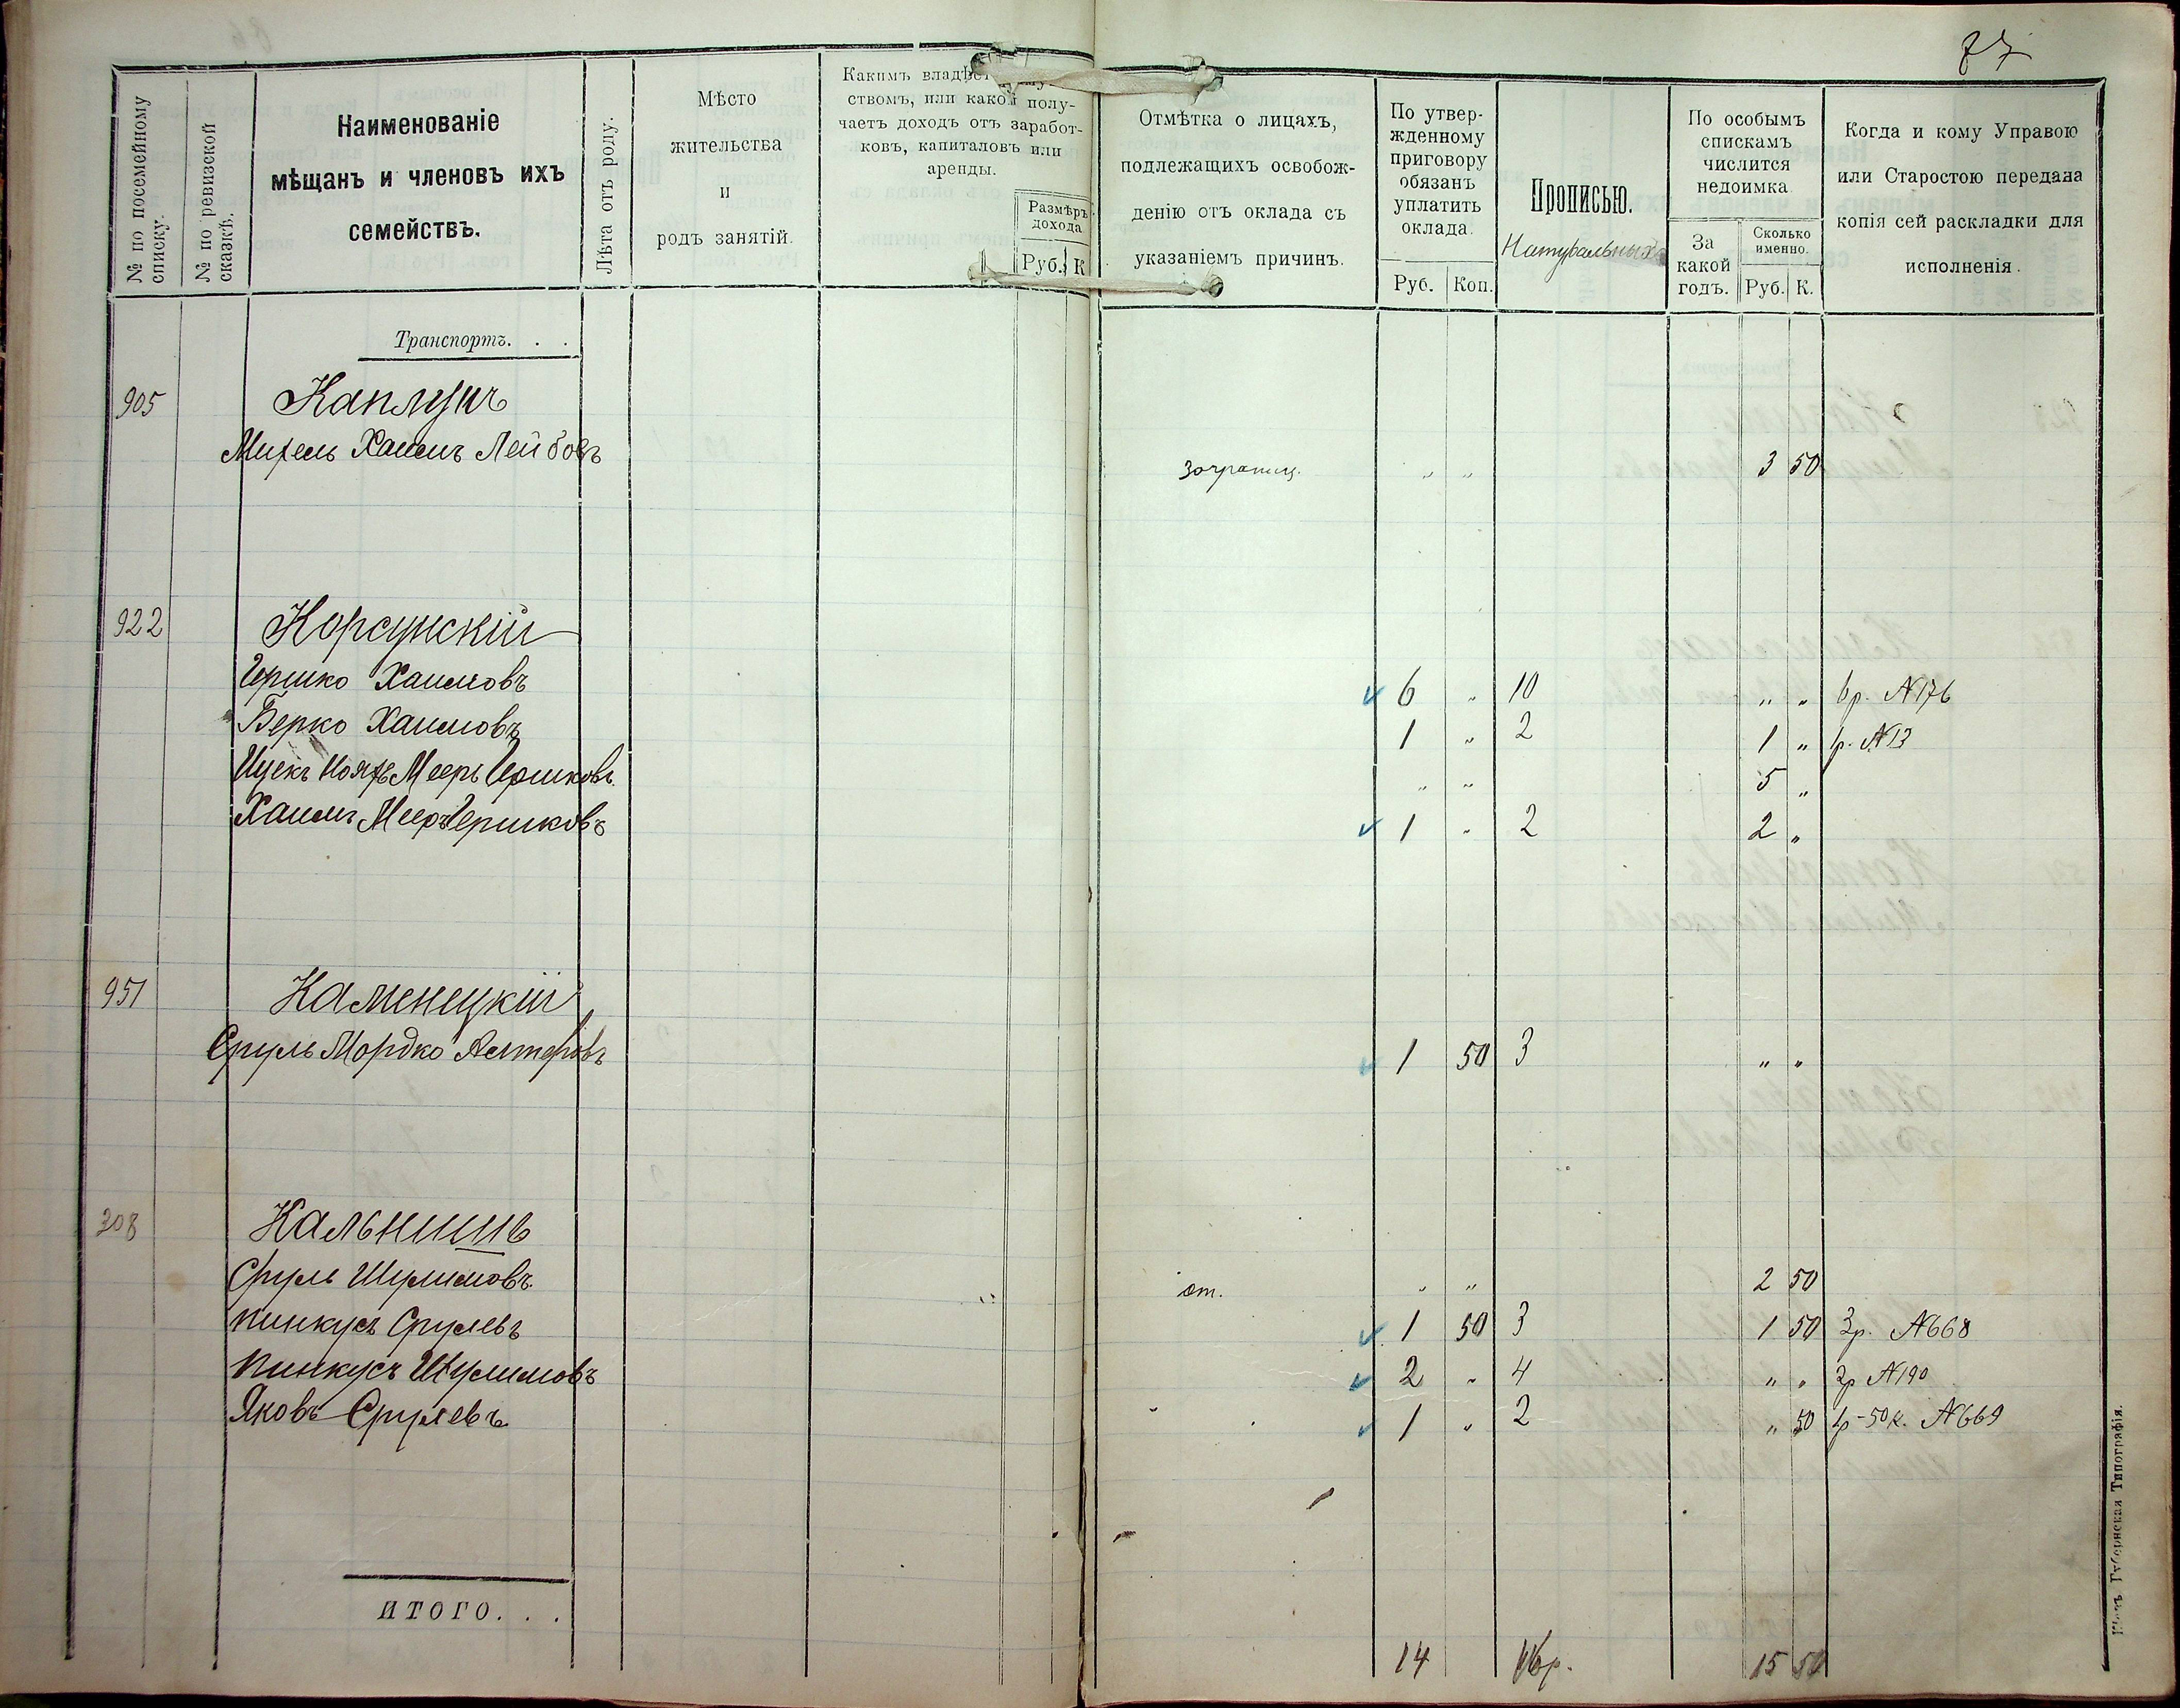 87
№ по посемейному списку.
№ по ревизской сказкѣ.
Наименованіе
мѣщанъ и членовъ ихъ
семействъ.
Лѣта отъ роду.
Мѣсто
жительства
и
родъ занятій.
Какимъ
ствомъ, или какой полу-
чаетъ доходъ отъ заработ-
ковъ, капиталовъ или
аренды.
Размѣръ
дохода
Руб. К
Отмѣтка о лицахъ,
подлежащихъ освобож-
денію отъ оклада съ
указаніемъ причинъ.
По утвер-
жденному
приговору
обязанъ
уплатить
оклада.
Руб. Коп.
Прописью.
Натуральныхъ
По особымъ
спискамъ
числится
недоимка
За
какой
годъ.
Сколько
именно.
Руб. К.
Когда и кому Управою
или Старостою передана
копія сей раскладки для
исполненія.
Транспортъ. . .
905 Каплунъ
Михель Хаимъ Лейбовъ заграниц. " " 3 50
922 Корсунскій
Гершко Хаимовъ 6 " 10 " " 6р. №176
Берко Хаимовъ 1 " 2 1 " 1р. №13
Мееръ Гершковъ " " 5 "
Хаимъ Мееръ Гершковъ 1 " 2 2 "
951 Каменецкій
Сруль Мордко 1 50 3 " "
308 Кальнишъ
Сруль Шулимовъ от. " " 2 50
Пинкусъ Срулевъ 1 50 3 1 50 3р. №668
Пинкусъ Шулимовъ 2 " 4 " " 2р №190
Яковъ Срулевъ 1 " 2 " 50 1р-50к. №669
ИТОГО. . .
14 15 50
Губернская Типографія.